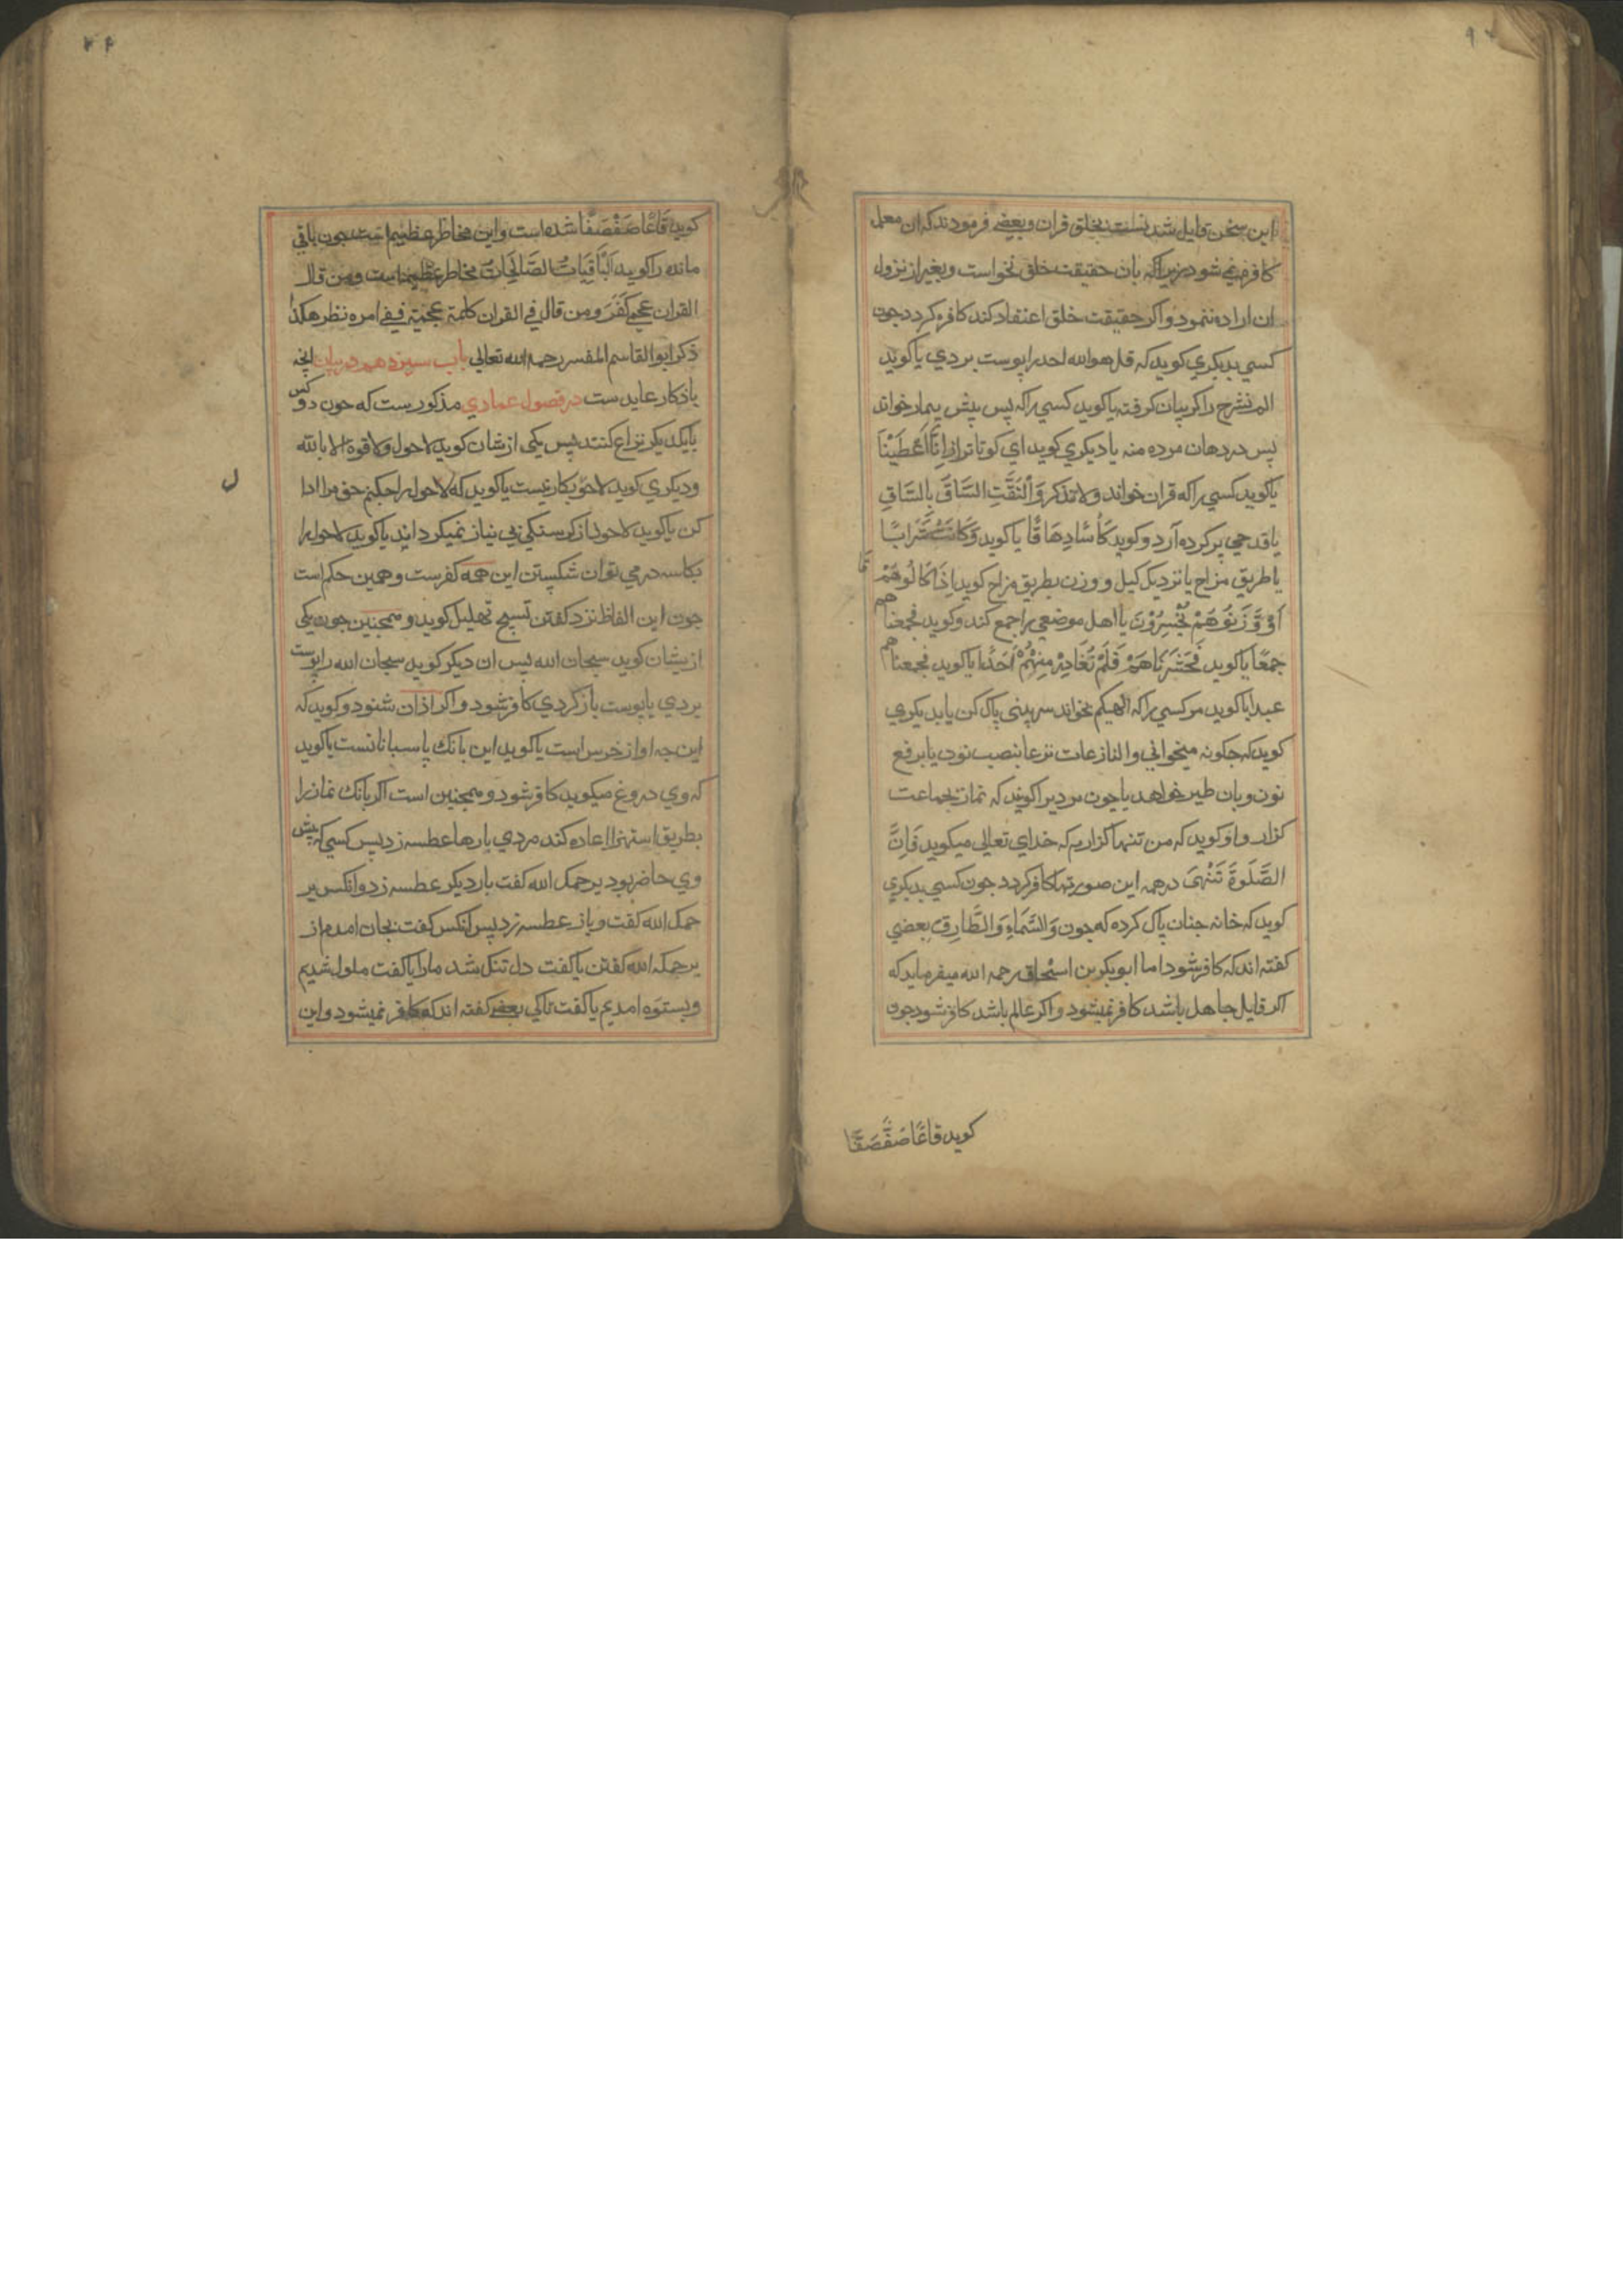 این سخن قایل شدنست بخلق قران و بعضے فرمودند که ان معلم
کافر نمے شود زیراکه بان حقیقت خلق نخواست و بغیر از نزول
ان اراده ننمود و اکر حقیقت خلق اعتقاد کند کافر کردد جون
کسي بدیکري کوید که قل هو الله احد را پوست بردي یا کوید
الم نشرح را کریبان کرفته یا کوید کسي را که یس پیش بیمار خواند
یس در دهان مرده منه یا دیکري کوید اي کوتاتر از اِنَّا اَعْطَیْنَا
یا کوید کسي را که قران خواند و لا تذکر وَالْتَفَّتِ السَّاقُ بِالسَّاقِ
یا قدحي پر کرده آرد و کوید کَاْسًا دِهَاقًا یا کوید وَکَانَتْ سَرَابًا
یا طریق مزاح یا نزدیک کیل و وزن بطریق مزاح کوید اِذَا کَالُوهُمْ
اَوْ وَّزَنُوهُمْ یُخْسِرُوْنَ یا اهل موضعي را جمع کند و کوید فجمعناهم
جمعًا یا کوید فَحَشَرْنَاهُمْ فَلَمْ نُغَادِرْ مِنْهُمْ اَحَدًا یا کوید فجمعناهم
عبدا یا کوید مر کسي را که الهیکم نخواند سر بینی پاک کن یا بدیکري
کوید که جکونه میخوانی والنازعات نزعا بنصب نون یا برفع
نون و بان طیر خواهد یا جون مردیرا کویند که نماز بجماعت
کزار و او کوید که من تنها کزارم که خداي تعالی میکوید فَاِنَّ
الصَّلٰوةَ تَنْهٰی در همه این صورتها کافر کردد جون کسي بدیکري
کوید که خانه جنان پاک کرده که جون وَالسَّمَاءِ وَالطَّارِقِ بعضي
کفته اند که کافر شود اما ابوبکر بن اسحاق رحمه الله میفرماید که
اکر قایل جاهل باشد کافر نمیشود و اکر عالم باشد کافر شود جون
کوید قاعًا صَفْصَفًا
کوید قَاعًا صَفْصَفًا شده است و این مخاطره عظیم است جون باقي
مانده را کوید اَلْبَاقِیَاتُ الصَّالِحَاتُ مخاطره عظیم است ومن قال
القران عجمي کَفَرَ و من قال في القران کلمة عجمیة ففے امره نظر هکذا
ذکر ابو القاسم المفسر رحمه الله تعالی باب سیزدهم در بیان انچه
باذکار عاید ست در فصول عمادي مذکورست که جون دو کس
بایکدیکر نزاع کنند پس یکی ازیشان کوید لا حول ولا قوة الا بالله
و دیکري کوید لا حول بکار نیست یا کوید که لا حول را جکنم حق مرا ادا
کن یا کوید لا حول از کرسنکي بي نیاز نمیکرداند یا کوید لا حول را
بکاسه در مي توان شکستن این همه کفرست و همین حکم است
جون این الفاظ نزد کفتن تسبیح تهلیل کوید و همجنین جون یکی
ازیشان کوید سبحان الله پس ان دیکر کوید سبحان الله را پوست
بردي یا پوست باز کردي کافر شود و اکر اذان شنود و کوید که
این جه اواز خرس است یا کوید این بانک پاسبانانست یا کوید
که وي دروغ میکوید کافر شود و همجنین است اکر بانک نماز را
بطریق استهزا اعاده کند مردي بارها عطسه زد پس کسي که پیش
وي حاضر بود یرحمک الله کفت بار دیکر عطسه زد و انکس یر
حمک الله کفت و باز عطسه زد پس انکس کفت بجان امدم از
یرحمک الله کفتن یا کفت دل تنک شد مارا یا کفت ملول شدیم
و بستوه امدیم یا کفت تاکي بعضے کفته اند که کافر نمیشود و این